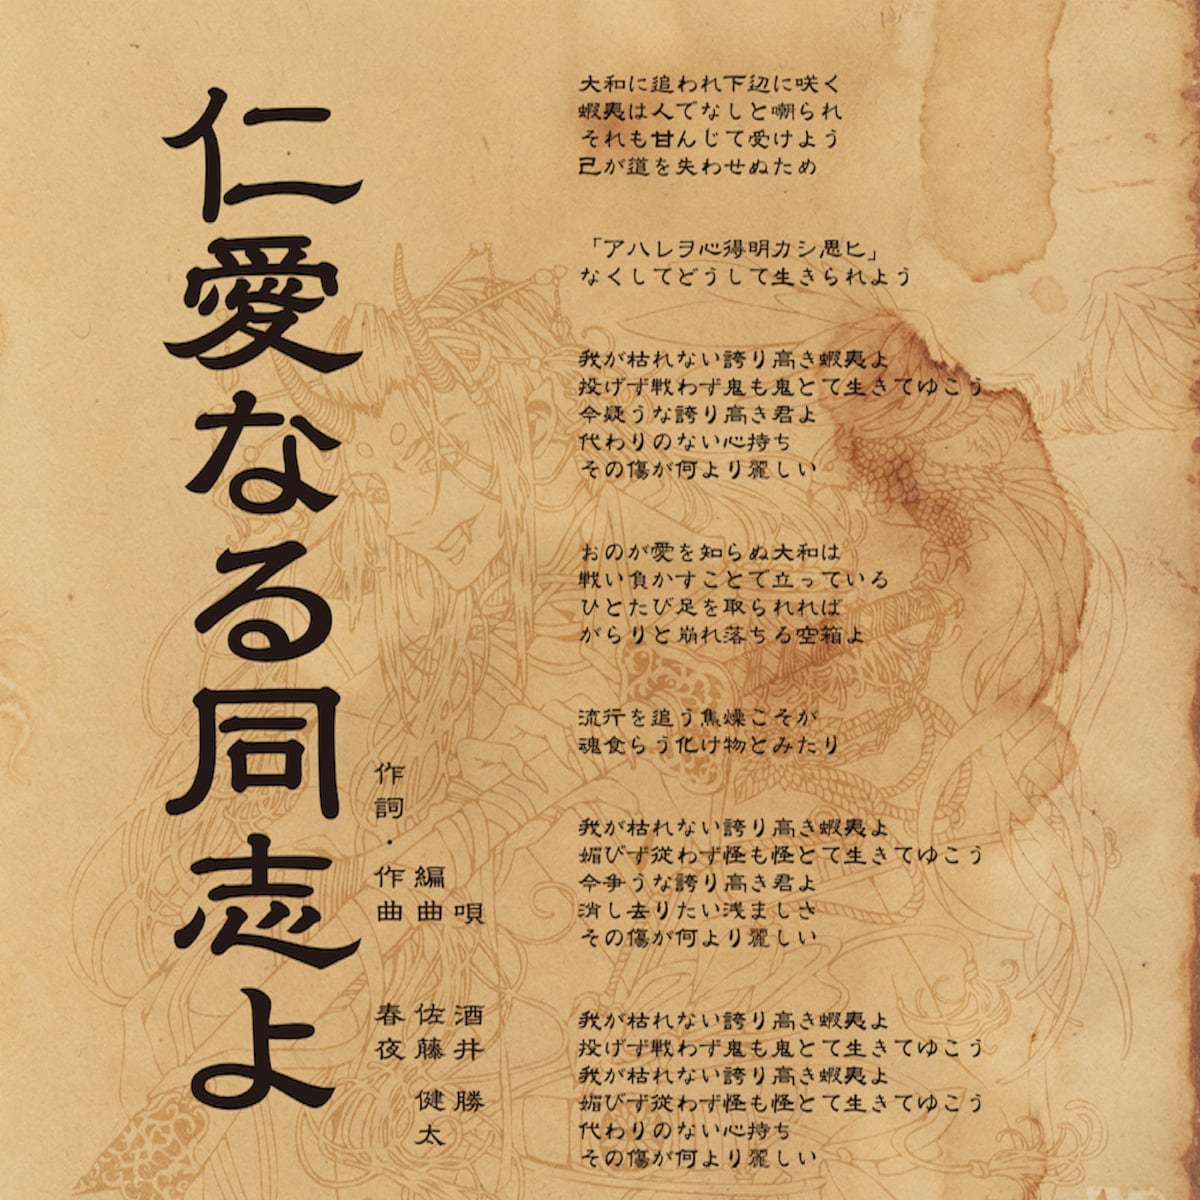 仁愛なる同志よ
作詞・作曲 春夜
編曲 佐藤健太
唄 酒井勝
大和に追われ下辺に咲く
蝦夷は人でなしと嘲られ
それも甘んじて受けよう
己が道を失わせぬため
「アハレヲ心得明カシ思ヒ」
なくしてどうして生きられよう
我が枯れない誇り高き蝦夷よ
投げず戦わず鬼も鬼とて生きてゆこう
今疑うな誇り高き君よ
代わりのない心持ち
その傷が何より麗しい
おのが愛を知らぬ大和は
戦い負かすことで立っている
ひとたび足を取られれば
がらりと崩れ落ちる空箱よ
流行を追う焦燥こそが
魂食らう化け物とみたり
我が枯れない誇り高き蝦夷よ
媚びず従わず怪も怪とて生きてゆこう
今争うな誇り高き君よ
消し去りたい浅ましさ
その傷が何より麗しい
我が枯れない誇り高き蝦夷よ
投げず戦わず鬼も鬼とて生きてゆこう
我が枯れない誇り高き蝦夷よ
媚びず従わず怪も怪とて生きてゆこう
代わりのない心持ち
その傷が何より麗しい